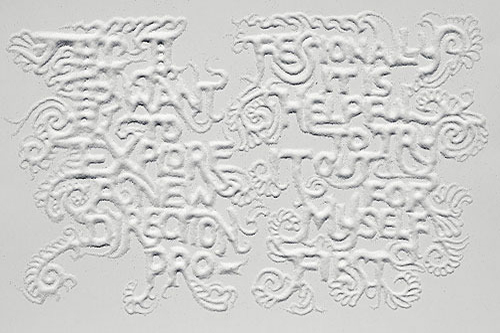 WANT
TO
EXPLORE
A NEW
DIRECTION
PRO-
FESIONALLY
IT IS
HELPFUL
TO TRY
IT OUT
FOR
MYSELF
FIRST